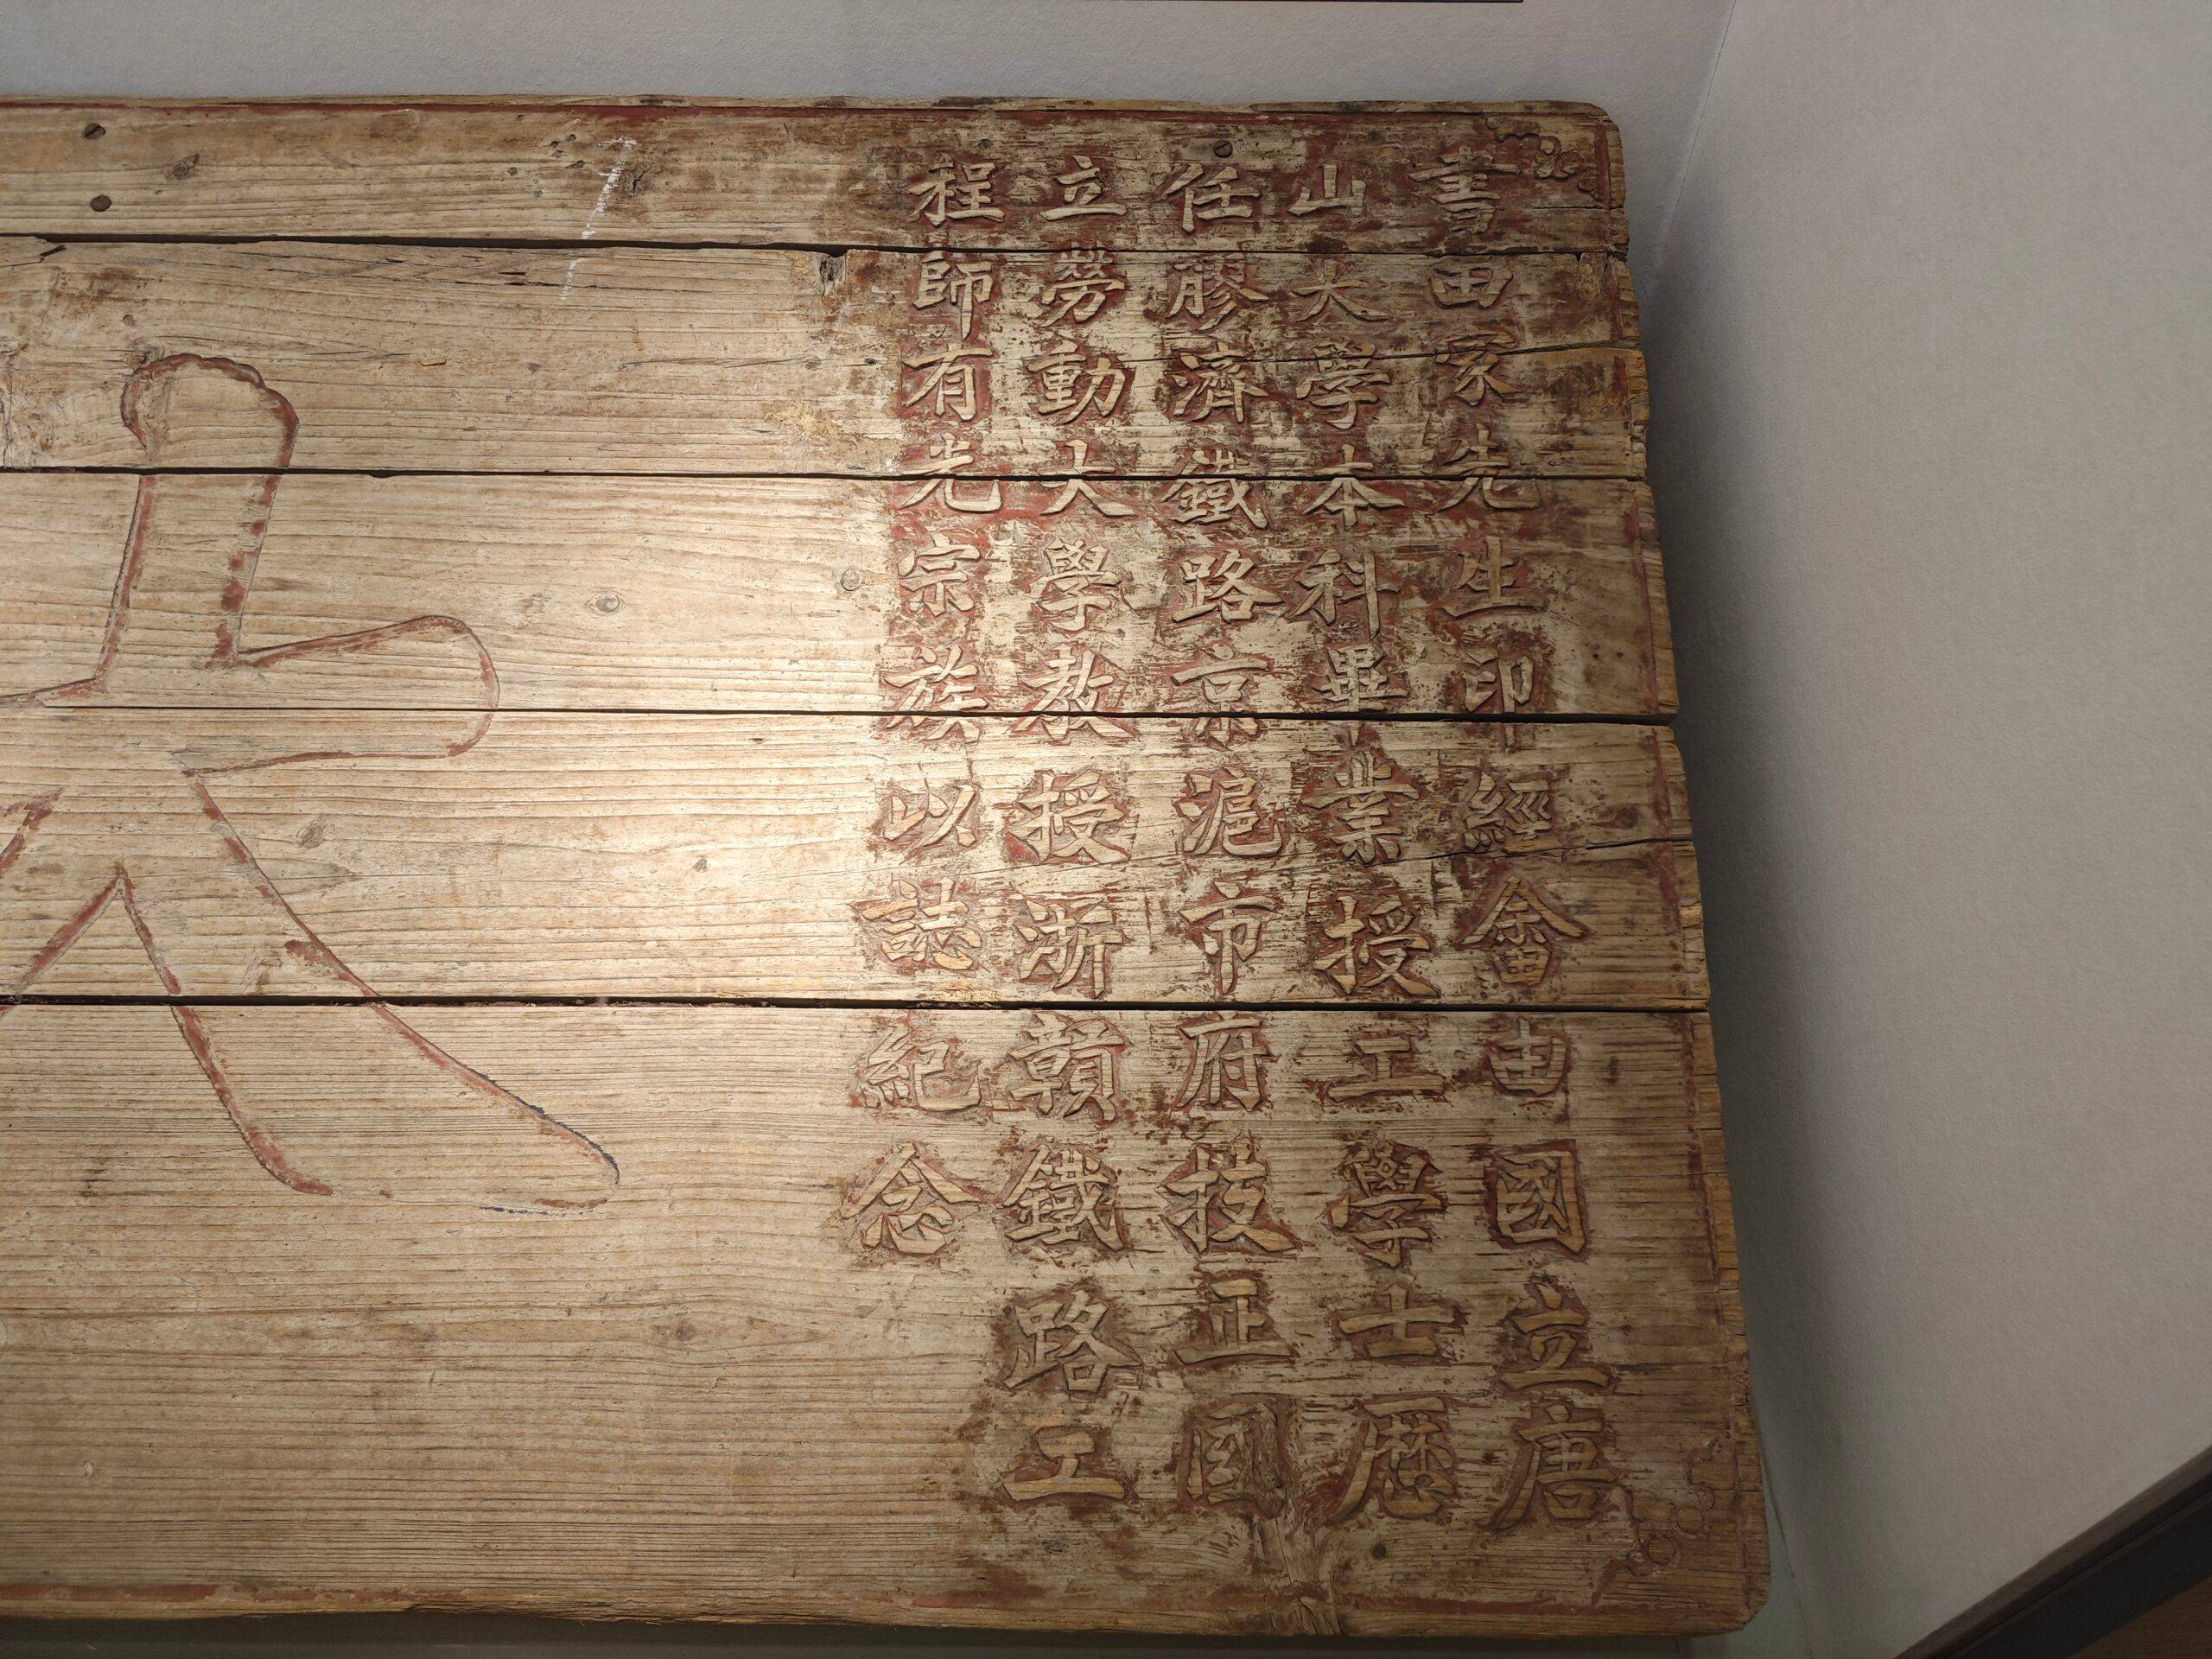 書田家先生印經畬由國立唐
山大學本科畢業授工學士歷
任膠濟鐵路京滬市府技正國
立勞動大學教授浙贛鐵路工
程師有光宗族以誌紀念